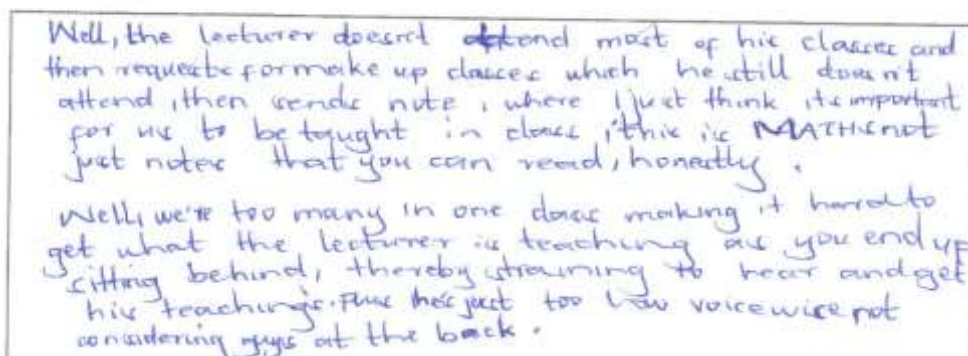 Well, the lecturer doesn't attend most of his classes and
then requests for make up classes which he still doesn't
attend, then sends note, where I just think its important
for us to be taught in class, this is MATHS not
just notes that you can read, honestly.
Well, we're too many in one class making it hard to
get what the lecturer is teaching as you end up
sitting behind, thereby straining to hear and get
his teachings. Plus he's just too low voice wise not
considering guys at the back.